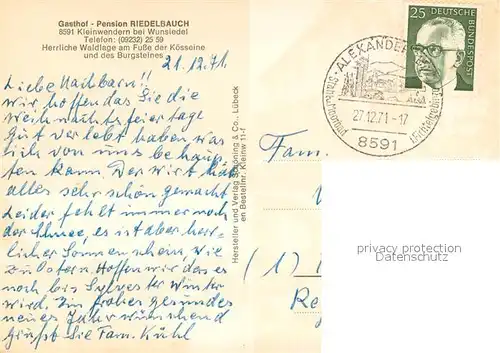 Gasthof - Pension RIEDELBAUCH
8591 Kleinwendern bei Wunsiedel
Telefon: (09232) 25 59
Herrliche Waldlage am Fuße der Kösseine
und des Burgsteines
21.12.71.
Liebe Nachbarn!!
wir hoffen das Sie die
weihnachtsfeiertage
Gut verlebt haben was
sich von uns behaup-
ten kann. Der wirt hat
alles sehr schön gemacht
Leider fehlt immer noch
der Schnee, es ist aber herr-
licher Sonnenschein wie
zu Ostern. Hoffen wir das es
noch bis Sylvester Winter
wird. Ein frohes gesundes
neues Jahr wünschend
Grüßt Sie Fam. Kühl
Hersteller und Verlag Schöning & Co., Lübeck
en Bestellnr. Kleinw 11-f
ALEXANDER
27.12.71-17
8591
25
DEUTSCHE
BUNDESPOST
Fam.
(1)
privacy protection
Datenschutz